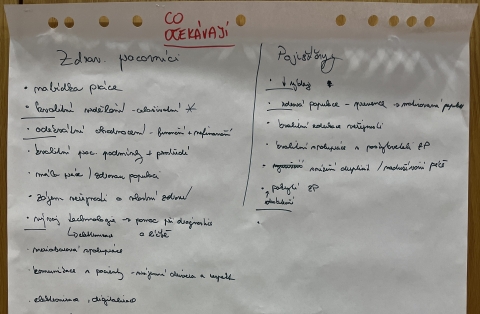 CO
OČEKÁVAJÍ
Zdrav. pracovníci
• nabídka práce
• kvalitní vzdělání - celoživotní *
• odpovídající ohodnocení - finanční + nefinanční
• kvalitní prac. podmínky + prostředí
• málo práce / zdravou populaci
• zájem veřejnosti o vlastní zdraví
• vývoj technologie → pomoc při diagnostice
a léčbě
• mezioborová spolupráce
• komunikace s pacienty - vzájemná důvěra a respekt
• elektronizace, digitalizace
Pojišťovny
• ↓ výdaje
• zdravá populace - prevence → motivovaná populace
• kvalitní edukace veřejnosti
• kvalitní spolupráce s poskytovateli ZP
• snížení duplicit / nadužívání péče
• poskyt. ZP